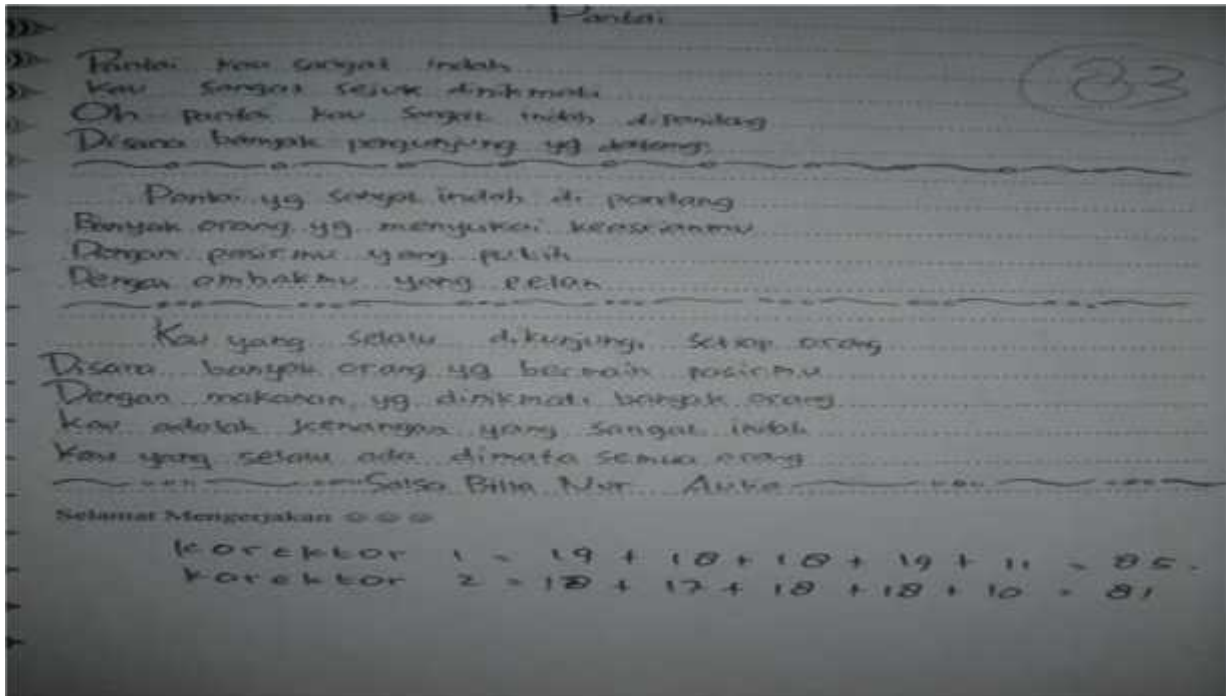 Pantai
83
Pantai kau sangat indah
Kau sangat sejuk dinikmati
Oh pantai kau sangat indah dipandang
Disana banyak pengunjung yg datang
Pantai yg sangat indah di pandang
Banyak orang yg menyukai keasrianmu
Dengan pasirmu yang putih
Dengan ombakmu yang pelan
Kau yang selalu dikunjungi setiap orang
Disana banyak orang yg bermain pasirmu
Dengan makanan yg dinikmati banyak orang
Kau adalah kenangan yang sangat indah
Kau yang selalu ada dimata semua orang
Salsa Billa Nur
Selamat Mengerjakan ☺☺☺
korektor 1 = 19 + 18 + 18 + 19 + 11 = 85.
korektor 2 = 18 + 17 + 18 + 18 + 10 = 81